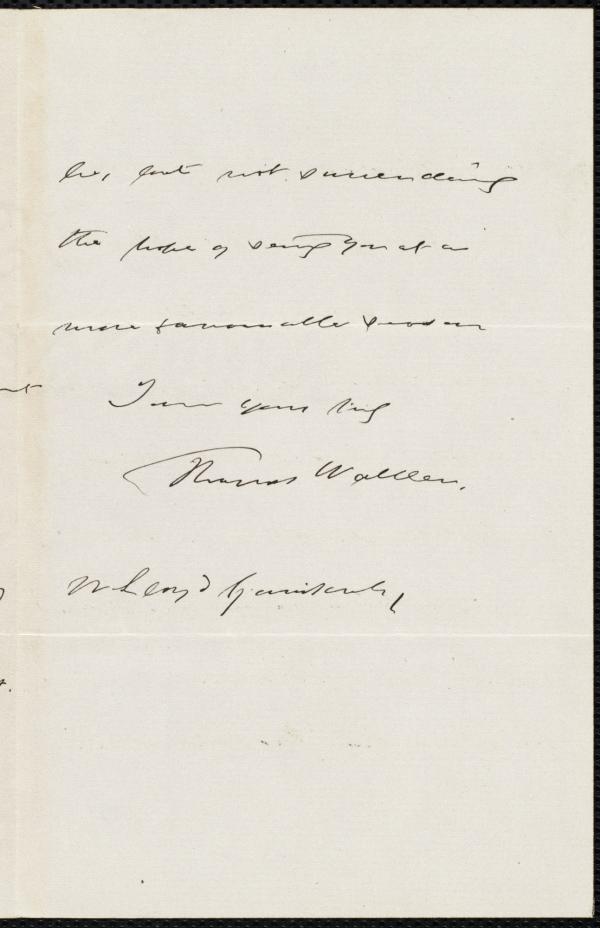 be, but not surrendering
the hope of seeing you at a
more favourable season
I am yours truly
Thomas Walker.
W Lloyd Garrison